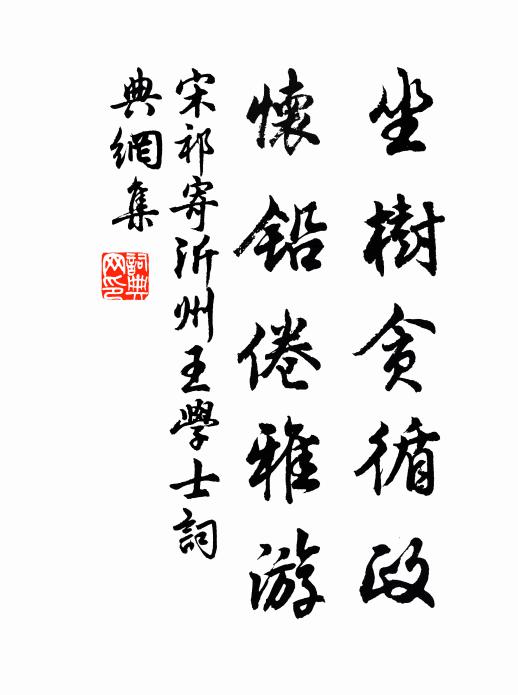 坐樹貪循政
懷鉛倦雅游
宋祁寄沂州王學士詞
典網集
詞典
网印